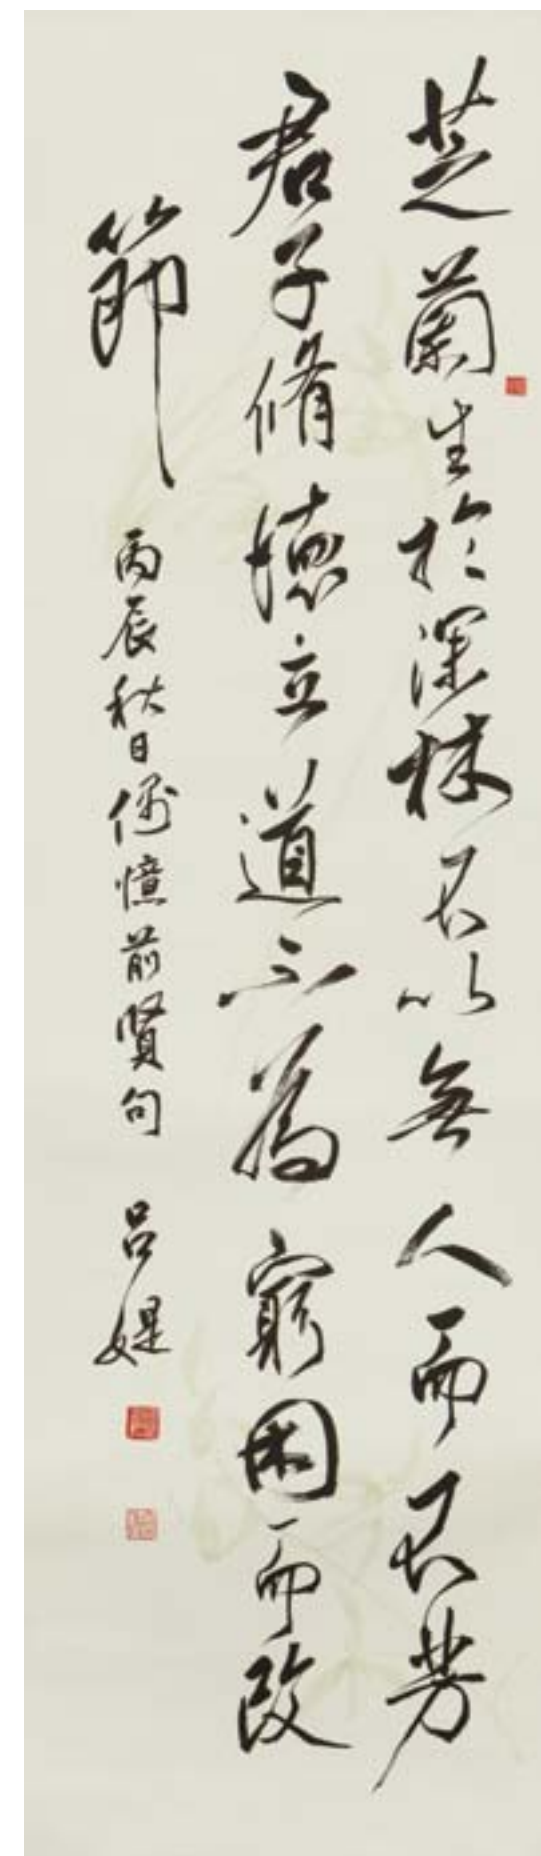 芝蘭生於深林不以無人而不芳
君子脩德立道不為窮困而改
節
丙辰秋日偶憶前賢句
呂媞